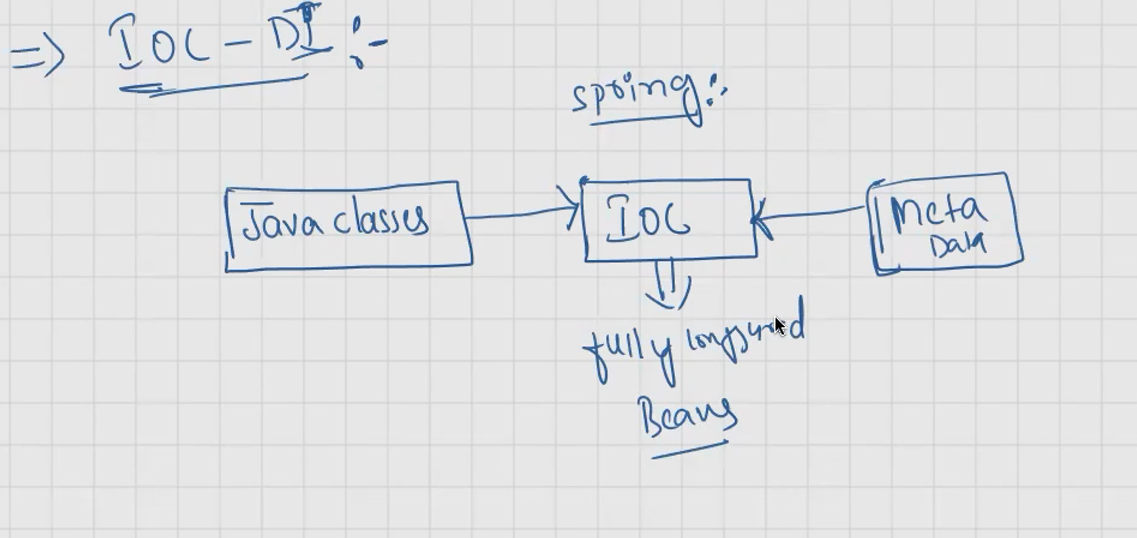 => IOC - DI :-
spring :-
Java classes
IOC
Meta
Data
fully configured
Beans